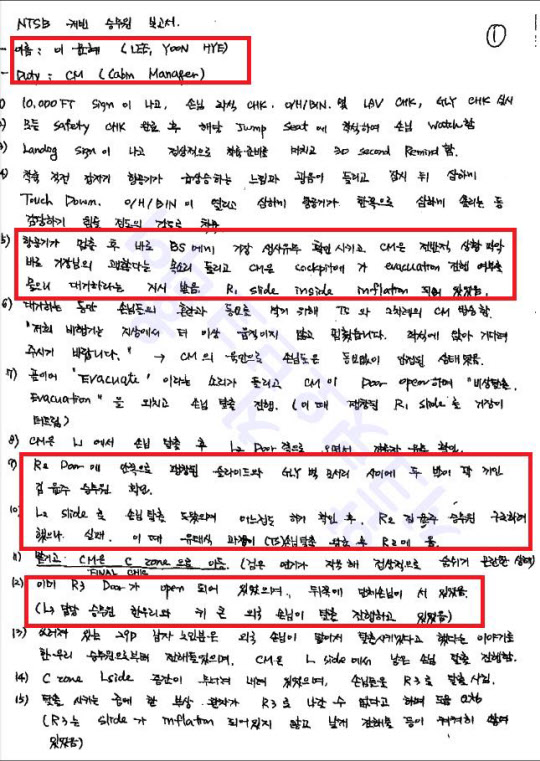 NTSB 캐빈 승무원 보고서.
①
- 이름 : 이 윤혜 (LEE, YOON HYE)
- Duty : CM (Cabin Manager)
10,000FT sign 이 나고, 손님 좌석 CHK. O/H/BIN. 및 LAV CHK, GLY CHK 실시
2) 모든 Safety CHK 완료 후 해당 Jump Seat 에 착석하여 손님 Watch 함
3) Landing sign 이 나고 정상적으로 착륙준비를 마치고 30 second Remind 함.
4) 착륙 직전 갑자기 항공기가 급상승하는 느낌과 굉음이 들리고 잠시 뒤 심하게
Touch Down. O/H/BIN 이 열리고 심하게 항공기가 한쪽으로 심하게 쏠리는 등
감당하기 힘들 정도의 강도로 착륙
5) 항공기가 멈춘 후 바로 BS에게 기장 생사유무 확인 시키고, CM은 전반적 상황 파악
바로 기장님의 괜찮다는 목소리 들리고 CM은 cockpit에 가 evacuation 진행 여부를
물으니 대기하라는 지시 받음 R1 slide inside inflation 되어 있었음.
6) 대기하는 동안 손님들의 혼란과 동요를 막기 위해 TS와 2차례의 CM 방송함.
"저희 비행기는 지상에서 더 이상 움직이지 않고 멈췄습니다. 좌석에 앉아 기다려
주시기 바랍니다." → CM의 육안으로 손님들은 동요없이 안정된 상태였음.
7) 곧이어 "Evacuate" 이라는 소리가 들리고 CM이 Door open하며 "비상탈출,
Evacuation" 을 외치고 손님 탈출 진행. (이 때 팽창된 R1 slide를 기장이
터트림)
8) CM은 L1 에서 손님 탈출 후 L2 Door 쪽으로 오면서
9) R2 Door 에 안쪽으로 팽창된 슬라이드와 GLY 벽 모서리 사이에 두 발이 꽉 끼인
김윤주 승무원 확인.
10) L2 slide로 손님 탈출 도왔으며 어느정도 하기 확인 후. R2 김윤주 승무원 구조하려
했으나 실패. 이 때 유태식 과장이 (TS)손님탈출 완료 후 R2에 옴.
11) 맡기고 CM은 C zone 으로 이동 (검은 연기가 자욱해 정상적으로 숨쉬기 곤란한 상태)
FINAL CHK
12) 이미 R3 Door가 open 되어 있었으며, 뒤쪽에 단체손님이 서 있었음
(L3 담당 승무원 한우리와 키 큰 외국 손님이 탈출 진행하고 있었음)
13) 쓰러져 있는 29D 남자 노인분은 외국 손님이 들어서 탈출시키었다고 했다는 이야기를
한우리 승무원으로부터 전해들었으며, CM은 L side에서 남은 손님 탈출 진행함.
14) C zone Lside 천장이 무너져 내려 있었으며, 손님들은 R3로 탈출 시킴.
15) 탈출 시키는 중에 한 부상 환자가 R3로 나갈 수 없다고 하여 도움 요청
(R3는 slide가 inflation 되어있지 않고 날개 잔해물 등이 켜켜히 쌓여
있었음)